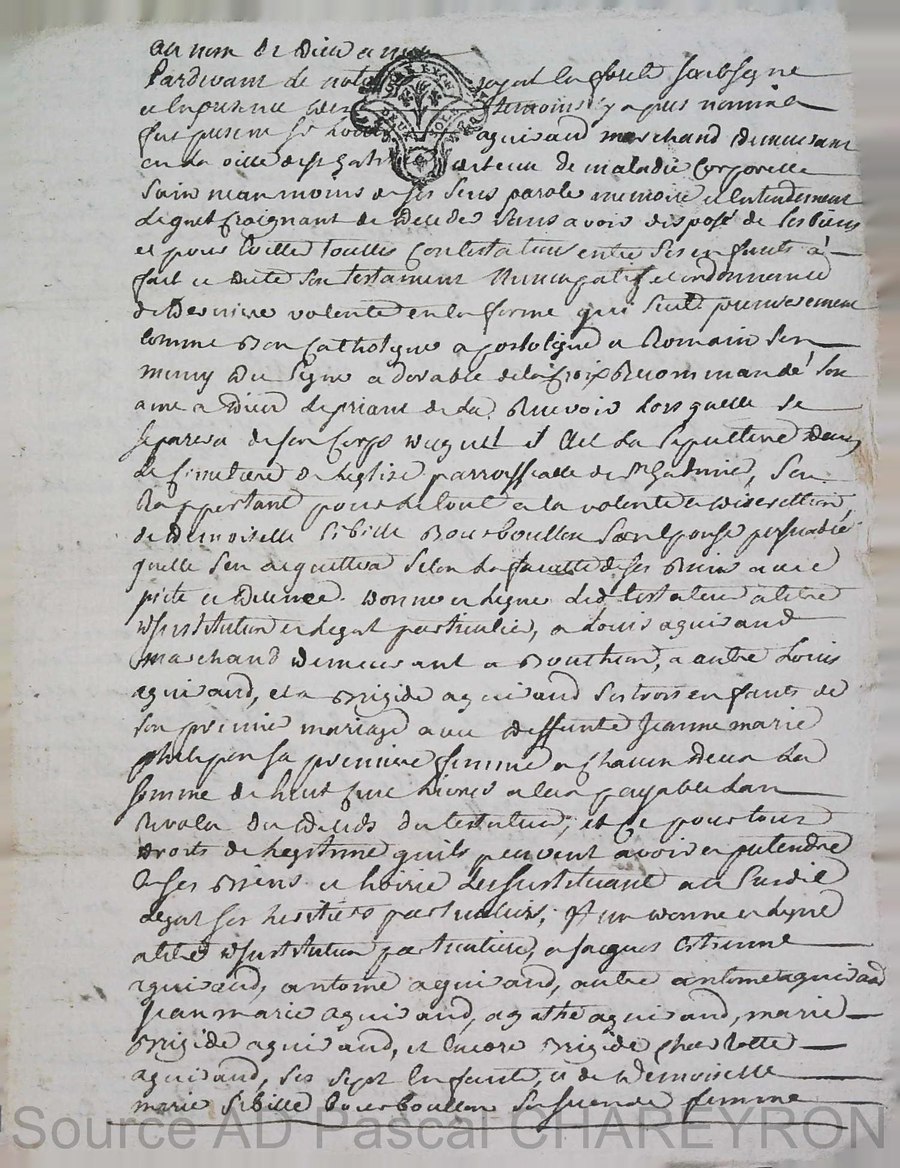 au nom de Dieu amen
Pardevant le notaire royal en forest soubsigne
et en presence des temoins cy apres nommé
fut present sr Louis aguiraud marchand demeurant
en la ville de st galmier detenu de maladie Corporelle
Sain neanmoins de ses sens parole memoire et Entendement
Lequel Craignant de deceder sans avoir disposé de ses biens
et pour Eviter touttes Contestations entre ses enfants à
fait et dicté son testament Nuncupatif et ordonnance
de Derniere volonté en la forme qui suit. premierement
Comme Bon Catholique apostolique et Romain s'en
muny du signe adorable de la Croix Recommandé son
ame a Dieu Le priant de la Recevoir Lorsquelle se
separera de son Corps duquel il Elit La sepulture dans
Le Cimetiere de Leglise parroissialle de st Galmier, sen
Rapportant pour le tout a la volonté et discretion
de demoiselle Sibille Bourboullon son Epouse persuadé
quelle sen acquittera selon La faculté de ses Biens avec
pieté et decence. donne et legue Led. testateur à titre
d'Institution et legat particulier, a Louis aguiraud
marchand demeurant a Bouthéon, a autre Louis
aguiraud, et a Brigide aguiraud ses trois enfants de
son premier mariage avec deffunte Jeanne marie
philipon sa premiere femme a Chacun deux La
somme de huit Cent Livres a eux payable dans
Revolu du deceds du testateur; et ce pour tous
droits de Legitime quils peuvent avoir et pretendre
en ses Biens et hoirie Les Instituant au susdit
legat ses heritiers particuliers; Item donne et legue
a titre d'Institution particuliere, a Jacques Estienne
aguiraud, antoine aguiraud, autre antoine aguiraud
Jean marie aguiraud, agathe aguiraud, marie
Brigide aguiraud, et Encore Brigide Charlotte
aguiraud, ses sept Enfants, et de demoiselle
marie Sibille Bourboullon sa seconde femme
Source AD Pascal CHAREYRON